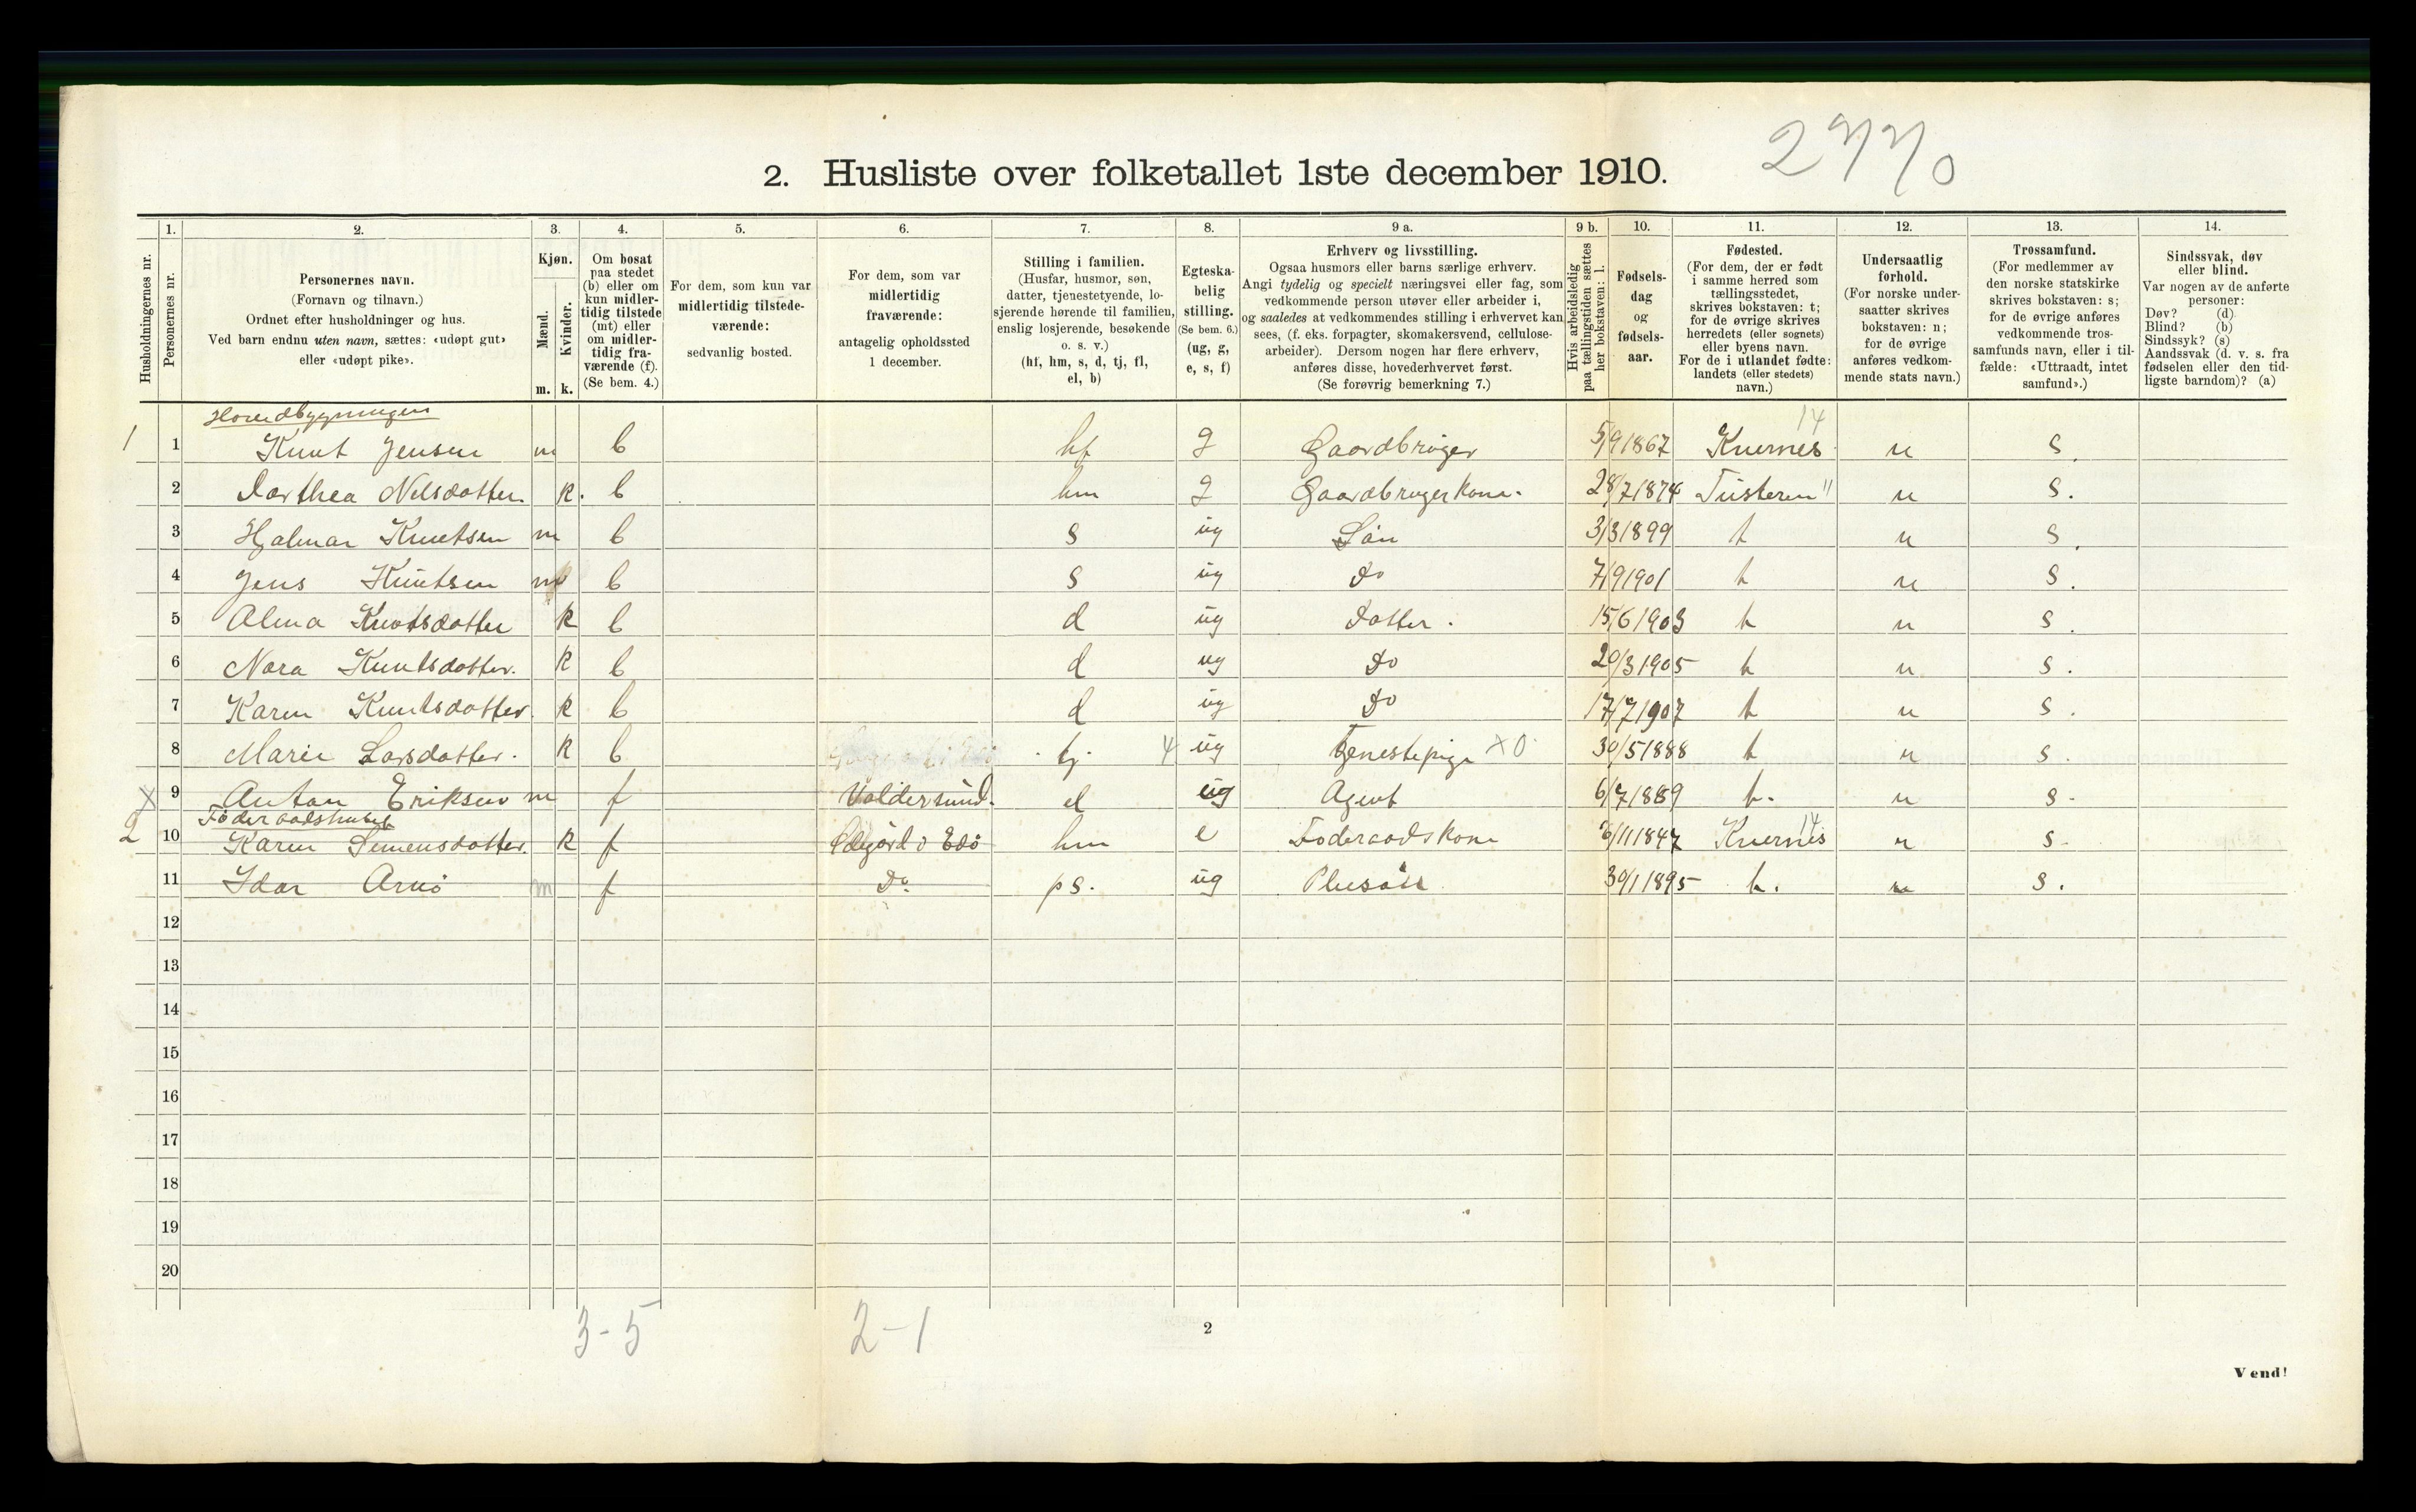 2770
2. Husliste over folketallet 1ste december 1910.
Husholdningernes nr.
1. Personernes nr.
2. Personernes navn. (Fornavn og tilnavn.) Ordnet efter husholdninger og hus. Ved barn endnu uten navn, sættes: «udøpt gut» eller «udøpt pike».
3. Kjøn. Mænd. m. Kvinder. k.
4. Om bosat paa stedet (b) eller om kun midlertidig tilstede (mt) eller om midlertidig fraværende (f). (Se bem. 4.)
5. For dem, som kun var midlertidig tilstedeværende: sedvanlig bosted.
6. For dem, som var midlertidig fraværende: antagelig opholdssted 1 december.
7. Stilling i familien. (Husfar, husmor, søn, datter, tjenestetyende, losjerende hørende til familien, enslig losjerende, besøkende o. s. v.) (hf, hm, s, d, tj, fl, el, b)
8. Egteskabelig stilling. (Se bem. 6.) (ug, g, e, s, f)
9 a. Erhverv og livsstilling. Ogsaa husmors eller barns særlige erhverv. Angi tydelig og specielt næringsvei eller fag, som vedkommende person utøver eller arbeider i, og saaledes at vedkommendes stilling i erhvervet kan sees, (f. eks. forpagter, skomakersvend, cellulosearbeider). Dersom nogen har flere erhverv, anføres disse, hovederhvervet først. (Se forøvrig bemerkning 7.)
9 b. Hvis arbeidsledig paa tællingstiden sættes her bokstaven: l.
10. Fødselsdag og fødselsaar.
11. Fødested. (For dem, der er født i samme herred som tællingsstedet, skrives bokstaven: t; for de øvrige skrives herredets (eller sognets) eller byens navn. For de i utlandet fødte: landets (eller stedets) navn.)
12. Undersaatlig forhold. (For norske undersaatter skrives bokstaven: n; for de øvrige anføres vedkommende stats navn.)
13. Trossamfund. (For medlemmer av den norske statskirke skrives bokstaven: s; for de øvrige anføres vedkommende trossamfunds navn, eller i tilfælde: «Uttraadt, intet samfund».)
14. Sindssvak, døv eller blind. Var nogen av de anførte personer: Døv? (d) Blind? (b) Sindssyk? (s) Aandssvak (d. v. s. fra fødselen eller den tidligste barndom)? (a)
Hovedbygningen
1 1 Knut Jensen m b hf g Gaardbruger 5/9 1867 Kvernes 14 n s
2 Dorthea Nilsdatter k. b hm g Gaardbrugerkone. 28/7 1874 Tusteren 11 n s.
3 Hjalmar Knutsen m b s ug Sön 3/3 1899 t n s.
4 Jens Knutsen m b s ug Do 7/9 1901 t n s.
5 Alma Knutsdatter k b d ug Datter. 15/6 1903 t n s.
6 Nora Knutsdatter. k b d ug Do 20/3 1905 t n s.
7 Karen Knutsdatter. k b d ug Do 17/7 1907 t n s.
8 Marie Larsdatter. k b tj 4 ug Tjenestepige X0 30/5 1888 t n s.
X 9 Anton Eriksen m f Valdersund. el ug Agent 6/7 1889 t. n s-
Föderaadshuset
2 10 Karen Simensdatter. k f Ödegård Edö hm e Föderaadskone 6/11 1847 Kvernes 14 n s-
11 Idar Arnö m f Do. ps. ug Pleisön 30/1 1895 t. n s.
12
13
14
15
16
17
18
19
20
3-5 2-1
2
Vend!